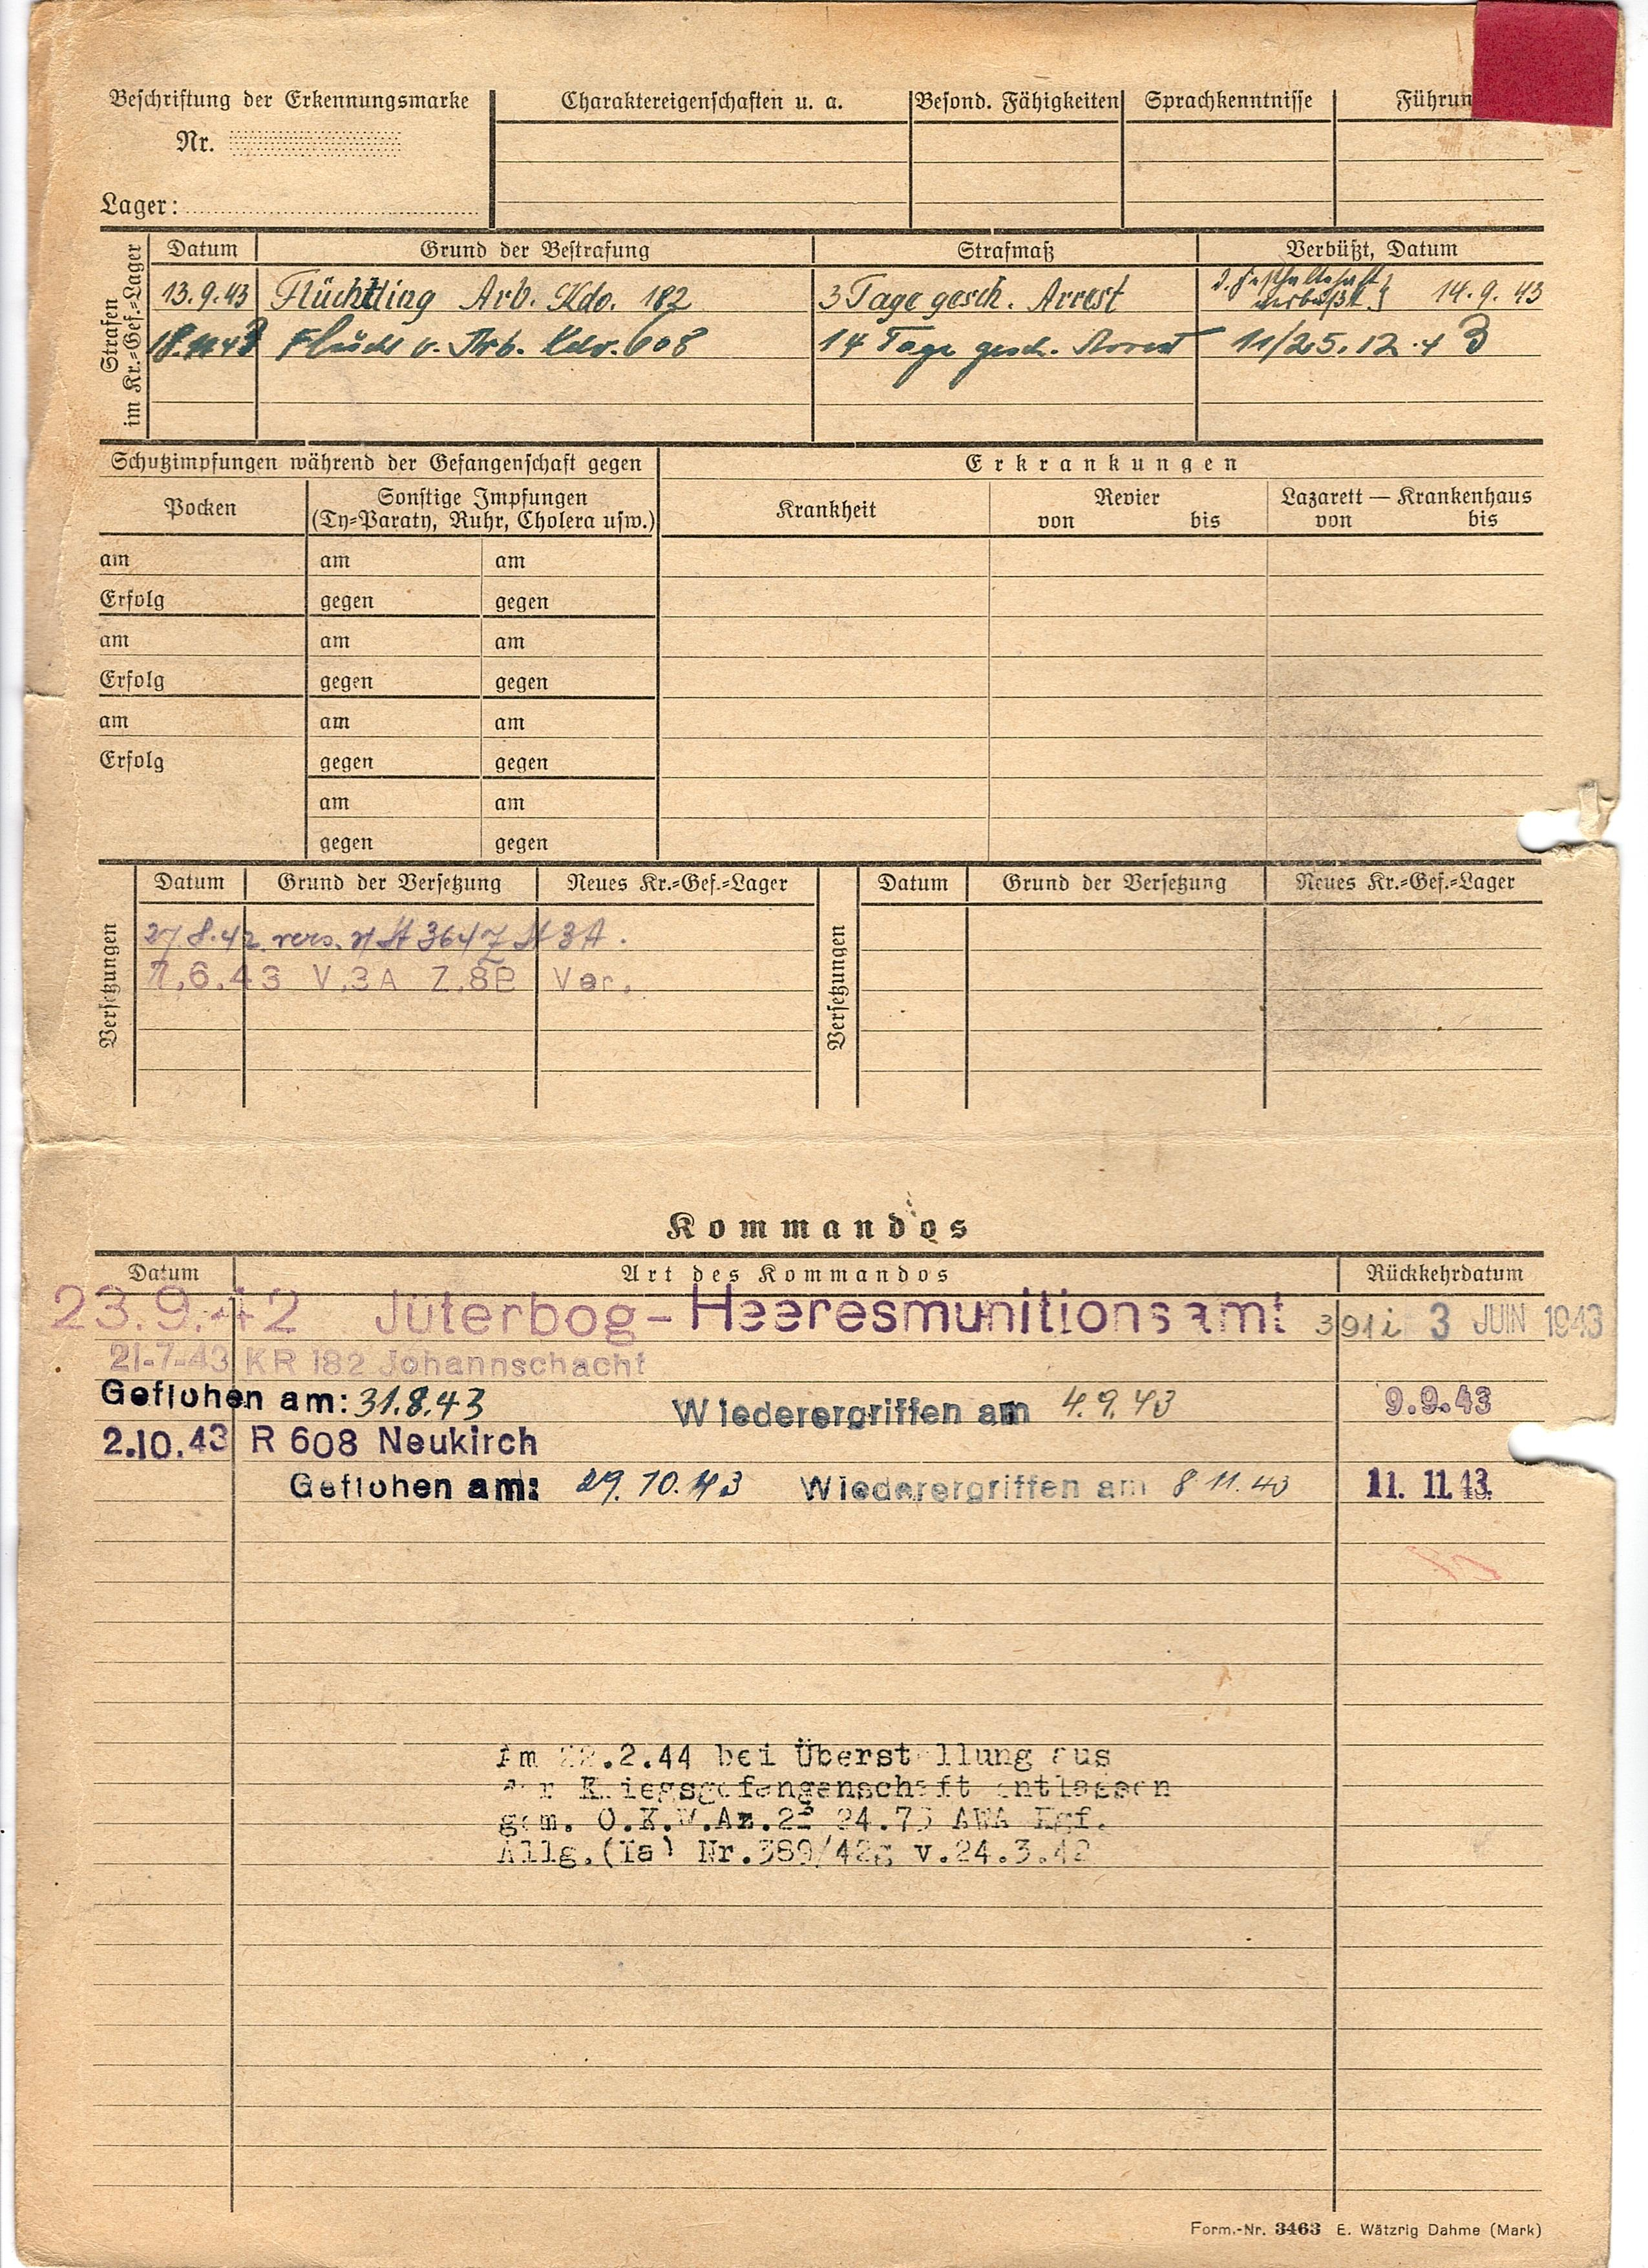 Beschriftung der Erkennungsmarke
Nr.
Lager:
Charaktereigenschaften u. a.
Besond. Fähigkeiten
Sprachkenntnisse
Führun
Strafen
im Kr.=Gef.=Lager
Datum Grund der Bestrafung Strafmaß Verbüßt, Datum
13.9.43 Flüchtling Arb. Kdo. 182 3 Tage gesch. Arrest verbüßt 14.9.43
Flucht v. Arb. Kdo. 608 14 Tage gesch. Arrest 11/25.12.43
Schutzimpfungen während der Gefangenschaft gegen
Erkrankungen
Pocken
Sonstige Impfungen
(Ty=Paraty, Ruhr, Cholera usw.)
Krankheit
Revier
von bis
Lazarett — Krankenhaus
von bis
am am am
Erfolg gegen gegen
am am am
Erfolg gegen gegen
am am am
Erfolg gegen gegen
am am
gegen gegen
Versetzungen
Datum Grund der Versetzung Neues Kr.=Gef.=Lager
27.8.42 vers. 3A.
6.43 V.3A Z.8B Ver.
Versetzungen
Datum Grund der Versetzung Neues Kr.=Gef.=Lager
Kommandos
Datum Art des Kommandos Rückkehrdatum
23.9.42 Jüterbog-Heeresmunitionsamt 391i 3 JUIN 1943
21-7-43 KR 182 Johannschacht
Geflohen am: 31.8.43 Wiederergriffen am 4.9.43 9.9.43
2.10.43 R 608 Neukirch
Geflohen am: 29.10.43 Wiederergriffen am 8.11.43 11.11.43.
Am .2.44 bei Überstellung aus
der Kriegsgefangenschaft entlassen
gem. O.K.W.Az.2 24.73 AWA Kgf.
Allg.(Ia) Nr.389/42g v.24.3.42
Form.-Nr. 3463 E. Wätzrig Dahme (Mark)